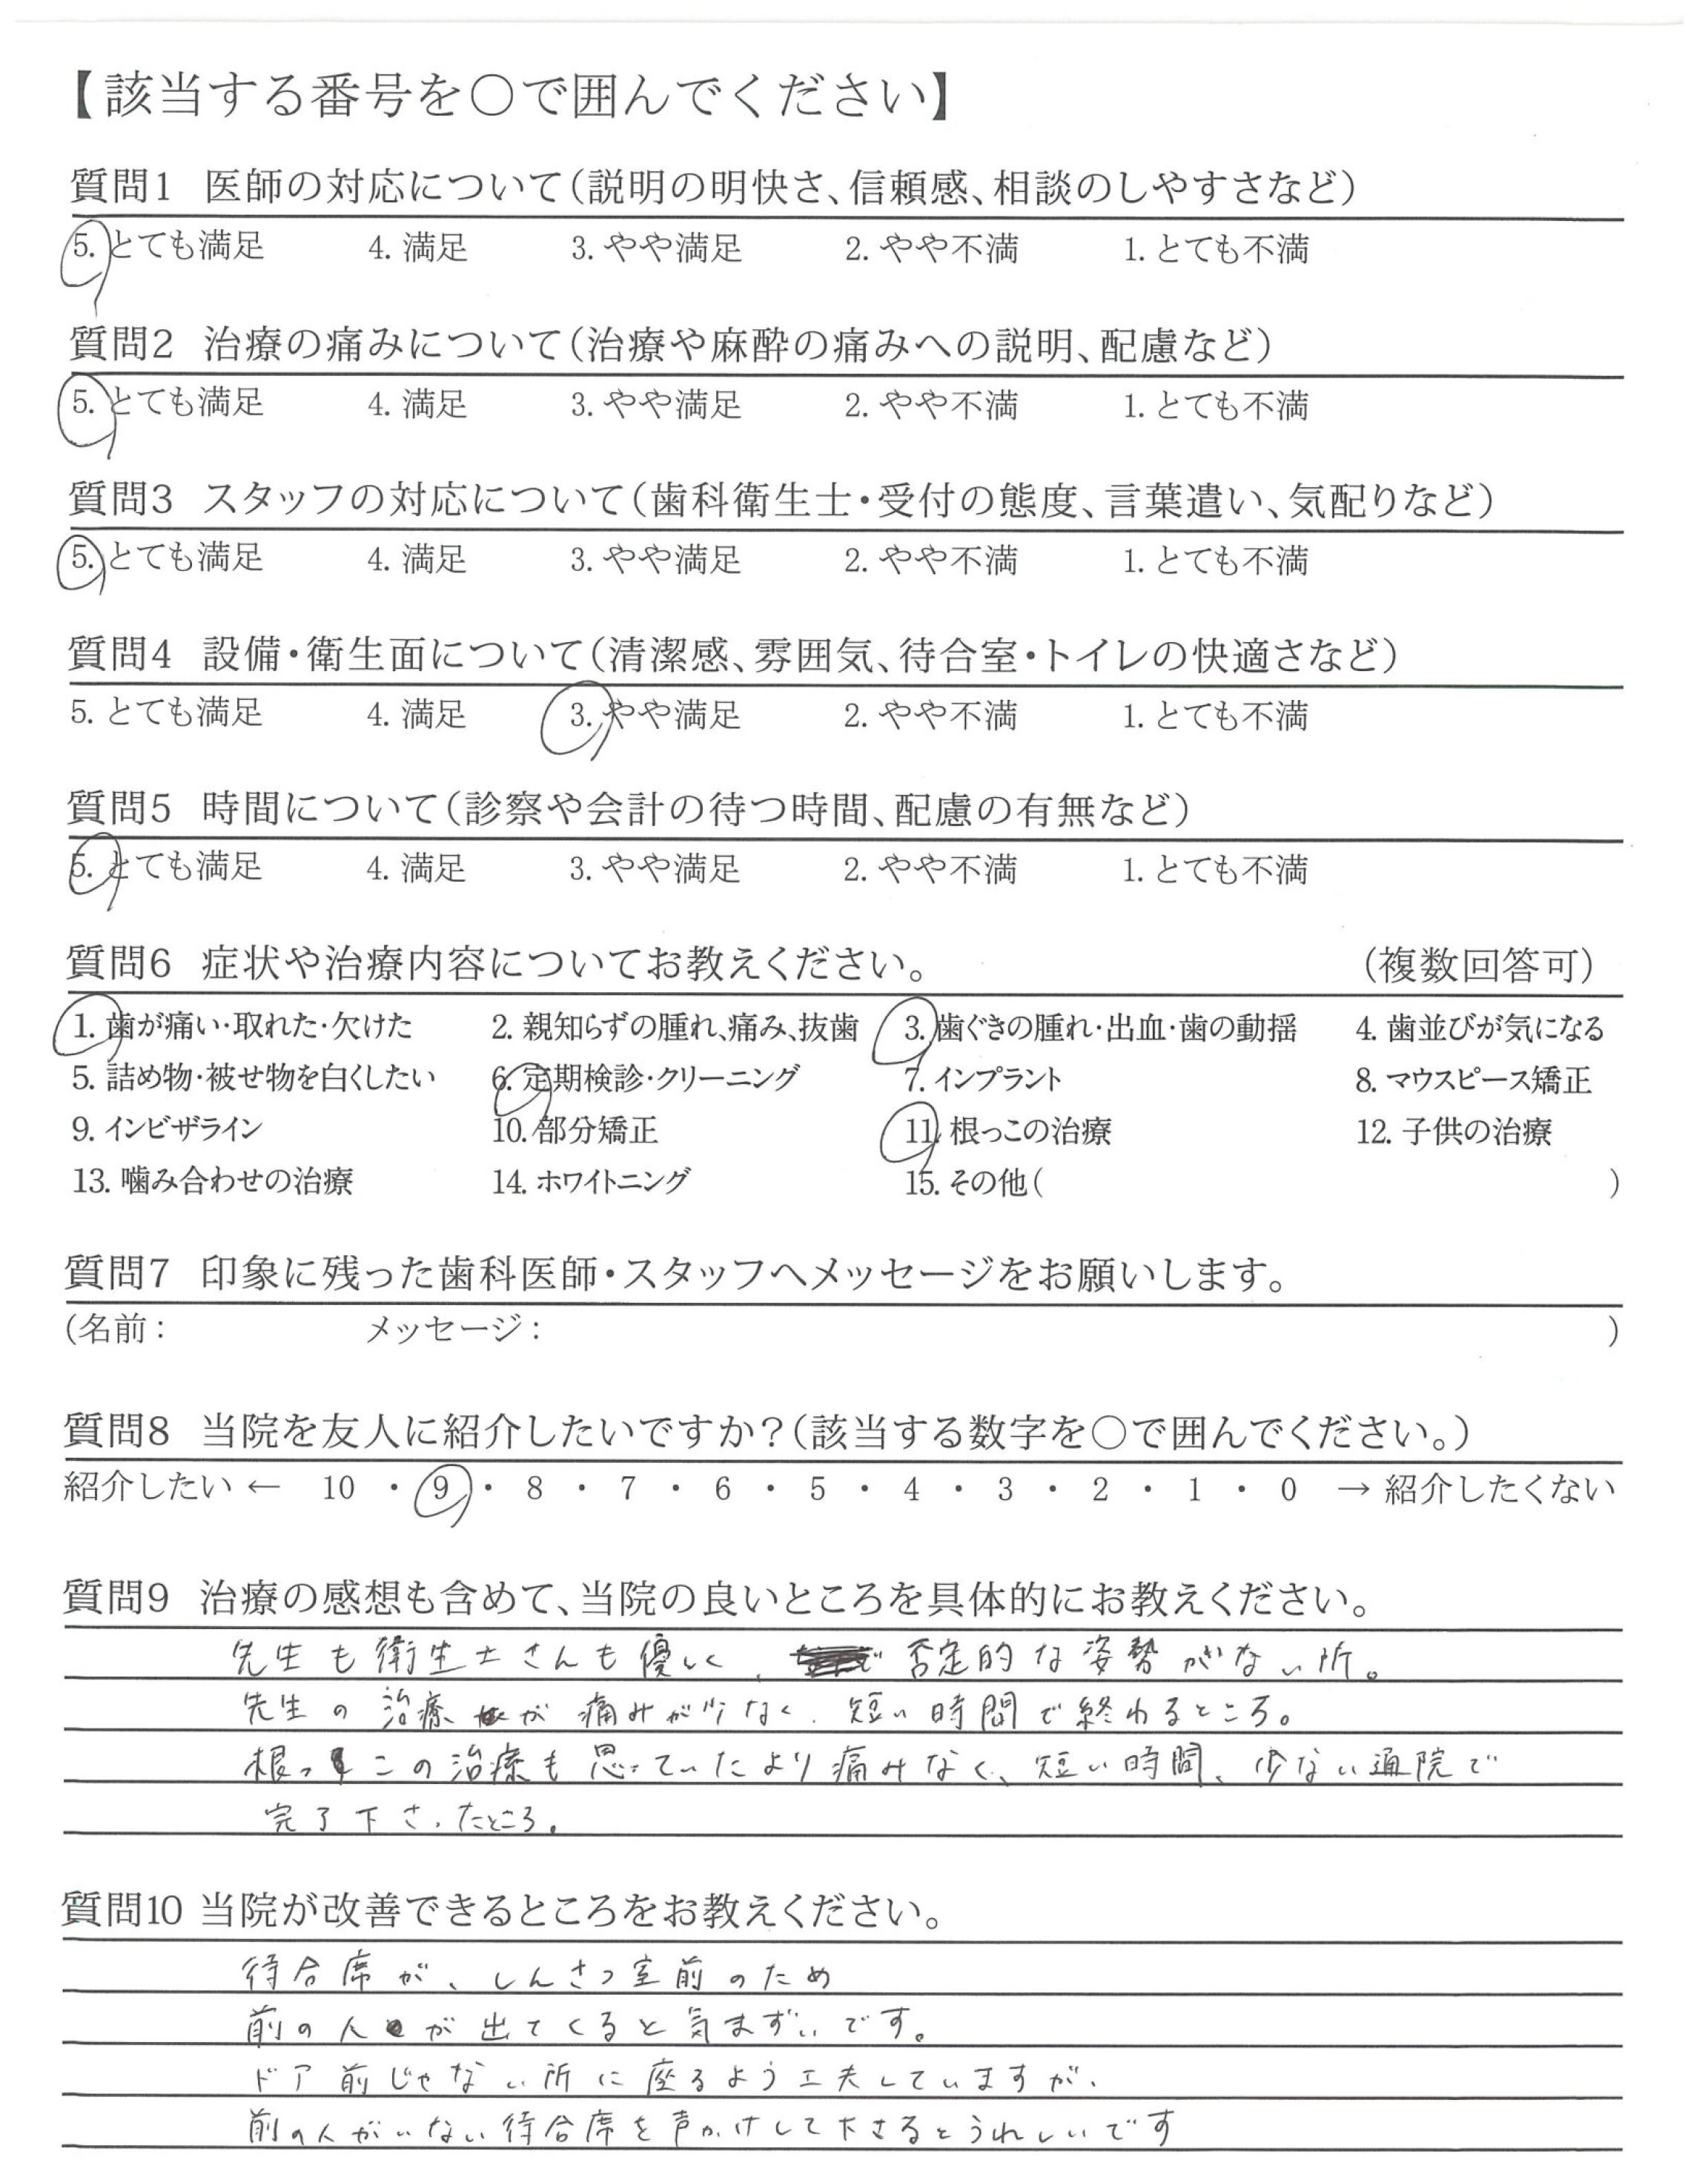 【該当する番号を○で囲んでください】
質問1 医師の対応について(説明の明快さ、信頼感、相談のしやすさなど)
5. とても満足 4. 満足 3. やや満足 2. やや不満 1. とても不満
質問2 治療の痛みについて(治療や麻酔の痛みへの説明、配慮など)
5. とても満足 4. 満足 3. やや満足 2. やや不満 1. とても不満
質問3 スタッフの対応について(歯科衛生士・受付の態度、言葉遣い、気配りなど)
5. とても満足 4. 満足 3. やや満足 2. やや不満 1. とても不満
質問4 設備・衛生面について(清潔感、雰囲気、待合室・トイレの快適さなど)
5. とても満足 4. 満足 3. やや満足 2. やや不満 1. とても不満
質問5 時間について(診察や会計の待つ時間、配慮の有無など)
5. とても満足 4. 満足 3. やや満足 2. やや不満 1. とても不満
質問6 症状や治療内容についてお教えください。 (複数回答可)
1. 歯が痛い・取れた・欠けた 2. 親知らずの腫れ、痛み、抜歯 3. 歯ぐきの腫れ・出血・歯の動揺 4. 歯並びが気になる
5. 詰め物・被せ物を白くしたい 6. 定期検診・クリーニング 7. インプラント 8. マウスピース矯正
9. インビザライン 10. 部分矯正 11. 根っこの治療 12. 子供の治療
13. 噛み合わせの治療 14. ホワイトニング 15. その他( )
質問7 印象に残った歯科医師・スタッフへメッセージをお願いします。
(名前: メッセージ: )
質問8 当院を友人に紹介したいですか?(該当する数字を○で囲んでください。)
紹介したい ← 10 ・ 9 ・ 8 ・ 7 ・ 6 ・ 5 ・ 4 ・ 3 ・ 2 ・ 1 ・ 0 → 紹介したくない
質問9 治療の感想も含めて、当院の良いところを具体的にお教えください。
先生も衛生士さんも優しく、否定的な姿勢がない所。
先生の治療が痛みが少なく、短い時間で終わるところ。
根っこの治療も思っていたより痛みなく、短い時間、少ない通院で
完了下さったところ。
質問10 当院が改善できるところをお教えください。
待合席が、しんさつ室前のため
前の人が出てくると気まずいです。
ドア前じゃない所に座るよう工夫していますが、
前の人がいない待合席を声かけして下さるとうれしいです